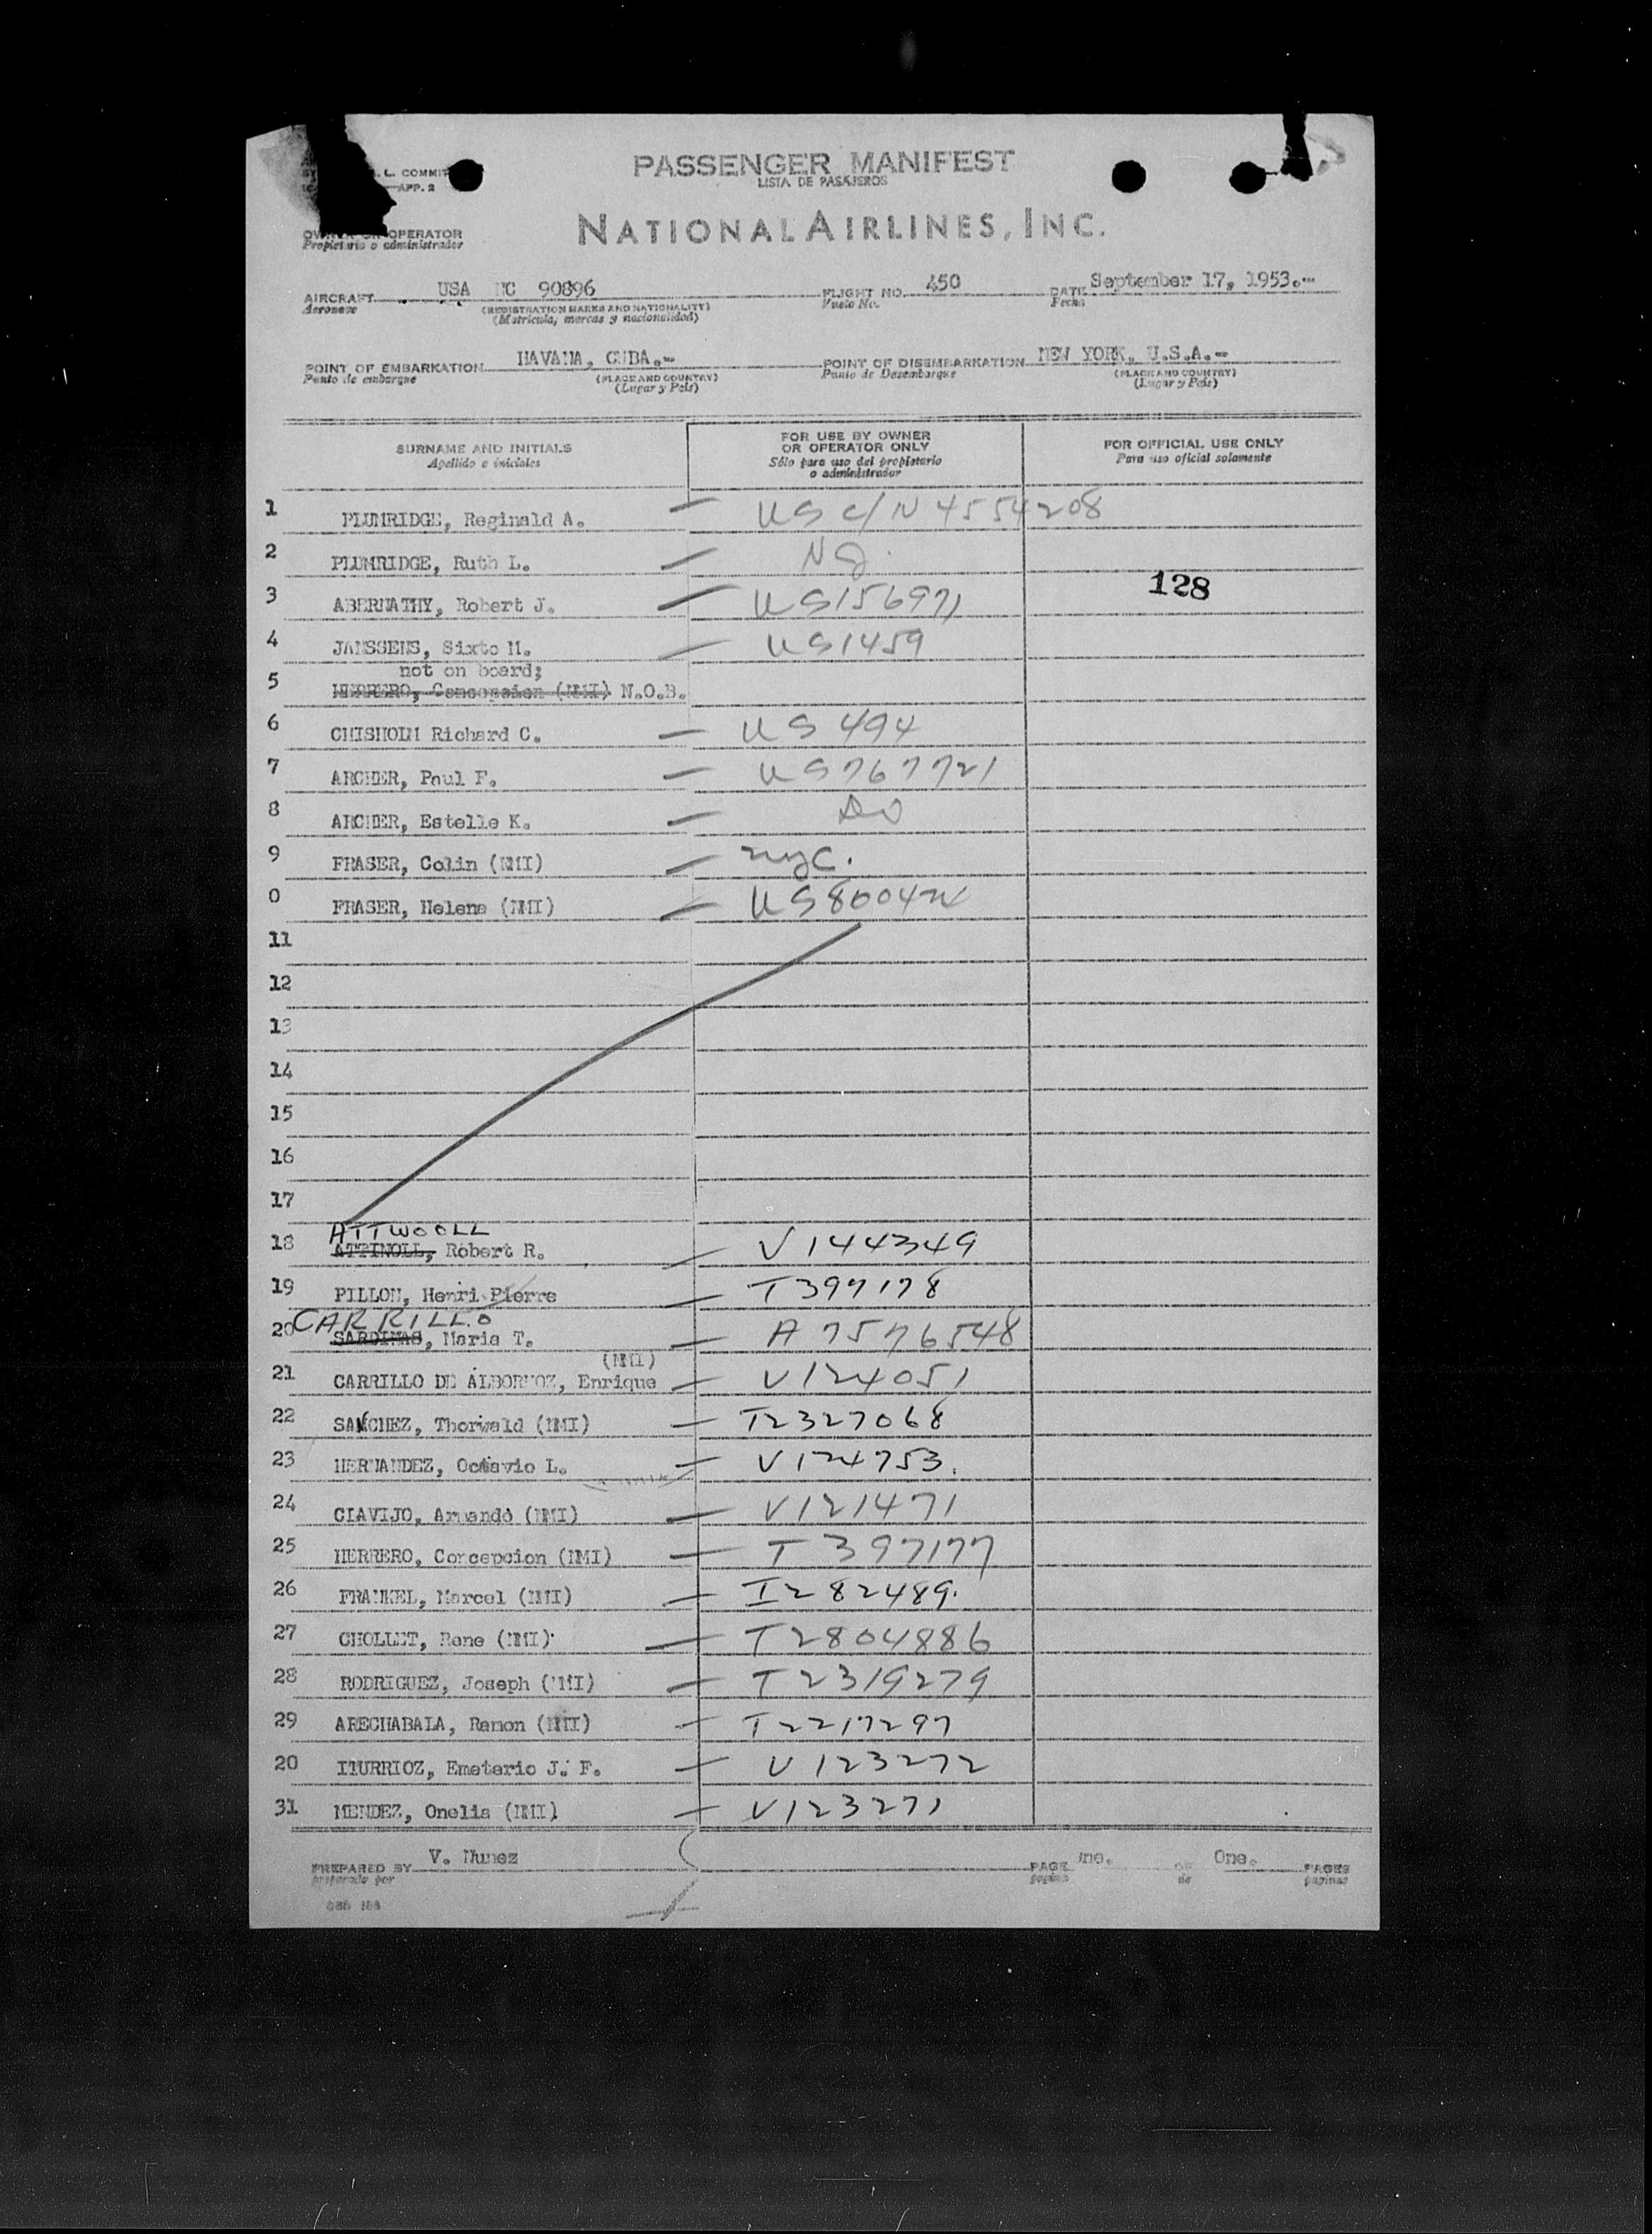 L. COMMIT
APP. 2
PASSENGER MANIFEST
LISTA DE PASAJEROS
NATIONAL AIRLINES, INC.
OPERATOR
Propietario o administrador
AIRCRAFT USA NC 90896 FLIGHT NO. 450 DATE September 17, 1953.-
Aeronave (REGISTRATION MARKS AND NATIONALITY) Vuelo No. Fecha
(Matricula, marcas y nacionalidad)
POINT OF EMBARKATION HAVANA, CUBA.- POINT OF DISEMBARKATION NEW YORK, U.S.A.-
Punto de embarque (PLACE AND COUNTRY) Punto de Desembarque (PLACE AND COUNTRY)
(Lugar y País) (Lugar y País)
SURNAME AND INITIALS FOR USE BY OWNER OR OPERATOR ONLY FOR OFFICIAL USE ONLY
Apellido e iniciales Sólo para uso del propietario o administrador Para uso oficial solamente
1 PLUMRIDGE, Reginald A. — US C/N 4554208
2 PLUMRIDGE, Ruth L. —
128
3 ABERNATHY, Robert J. — US156971
4 JANSSENS, Sixto M. — US1459
not on board;
5 HERRERO, Concepcion (NMI) N.O.B.
6 CHISHOLM Richard C. — US 494
7 ARCHER, Paul F. — US767721
8 ARCHER, Estelle K. — Do
9 FRASER, Colin (NMI) — nyc.
0 FRASER, Helene (NMI) —
11
12
13
14
15
16
17
ATTWOOLL
18 ATTINOLL, Robert R. — V144349
19 PILLON, Henri Pierre — T397178
CARRILLO
20 SARDINAS, Maria T. — A7576548
(NMI)
21 CARRILLO DE ALBORNOZ, Enrique — V124051
22 SANCHEZ, Thorwald (NMI) — T2327068
23 HERNANDEZ, Octavio L. — V124753.
24 CLAVIJO, Armando (NMI) — V121471
25 HERRERO, Concepcion (NMI) — T397177
26 FRANKEL, Marcel (NMI) — I282489.
27 CHOLLET, Rene (NMI) — T2804886
28 RODRIGUEZ, Joseph (NMI) — T2319279
29 ARECHABALA, Ramon (NMI) — T2217297
20 ITURRIOZ, Emeterio J. F. — V123272
31 MENDEZ, Onelia (NMI) — V123271
PREPARED BY V. Nunez PAGE One. OF One. PAGES
preparado por pagina de paginas